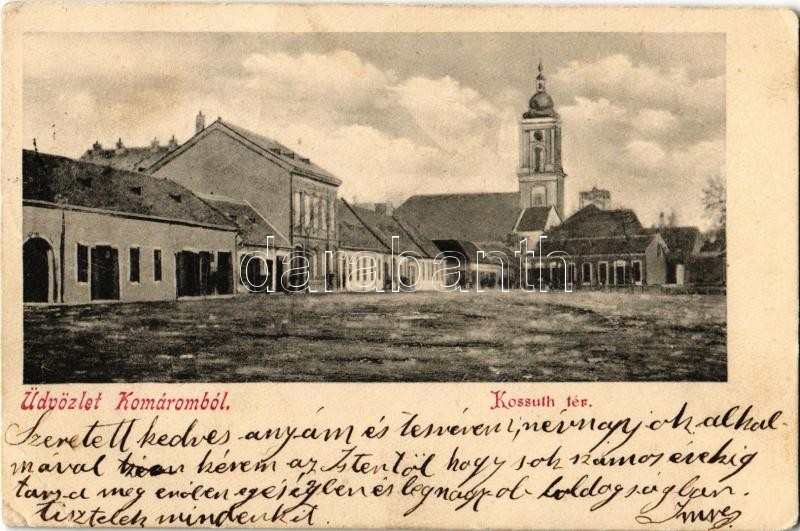 darabanth
Üdvözlet Komáromból.
Kossuth tér.
Szeretett kedves anyám és tesvéreim, névnapjok alkal-
mával kérem az Istentöl hogy sok számos évekig
tarsa meg erőben egésségben és legnagyob boldogságban.
tisztelek mindenkit. Imre